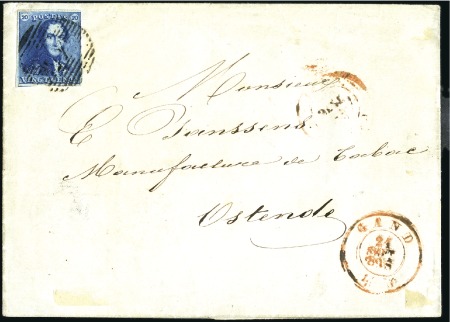 20 POSTES 20
VINGT CENTS
Monsieur
E Janssens
Manufacture de Tabac
Ostende
GAND